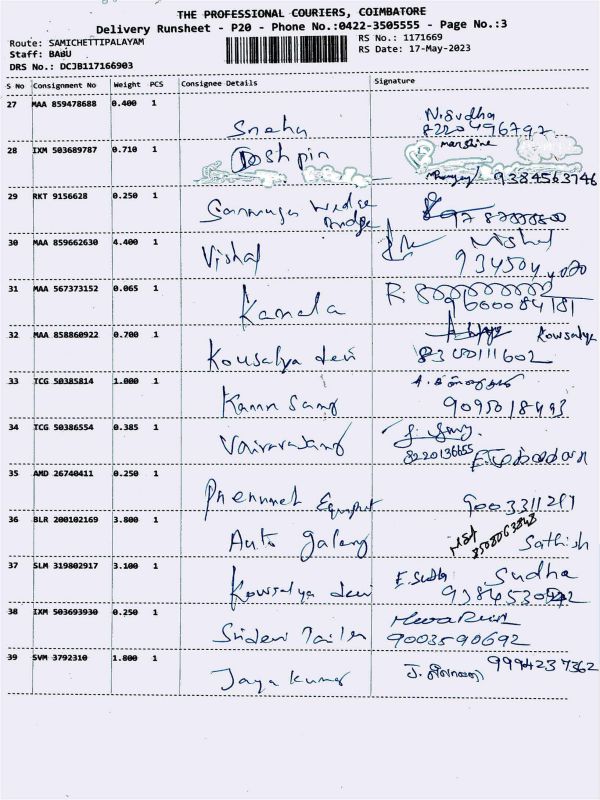 THE PROFESSIONAL COURIERS, COIMBATORE
Delivery Runsheet - P20 - Phone No.:0422-3505555 - Page No.:3
Route: SAMICHETTIPALAYAM
Staff: BABU
DRS No.: DCJB117166903
RS No.: 1171669
RS Date: 17-May-2023
S No Consignment No Weight PCS Consignee Details Signature
27 MAA 859478688 0.400 1
Sneha N. Sudha
8220496792
28 IXM 503689787 0.710 1
Doshpin
9384563746
29 RKT 9156628 0.250 1
30 MAA 859662630 4.400 1
Vishal
31 MAA 567373152 0.065 1
Kamala R.
9600084181
32 MAA 858860922 0.700 1
Kousalya devi Kowsalya
8300111602
33 TCG 50385814 1.000 1
9095018493
34 TCG 50386554 0.385 1
8220136655
35 AMD 26740411 0.250 1
9003311291
36 BLR 200102169 3.800 1
Auto galaxy Sathish
37 SLM 319802917 3.100 1
Kowsalya devi E. Sudha Sudha
38 IXM 503693930 0.250 1
Sridevi Tailor
9003590692
39 SVM 3792310 1.800 1
Jaya kumar J. 9994237362